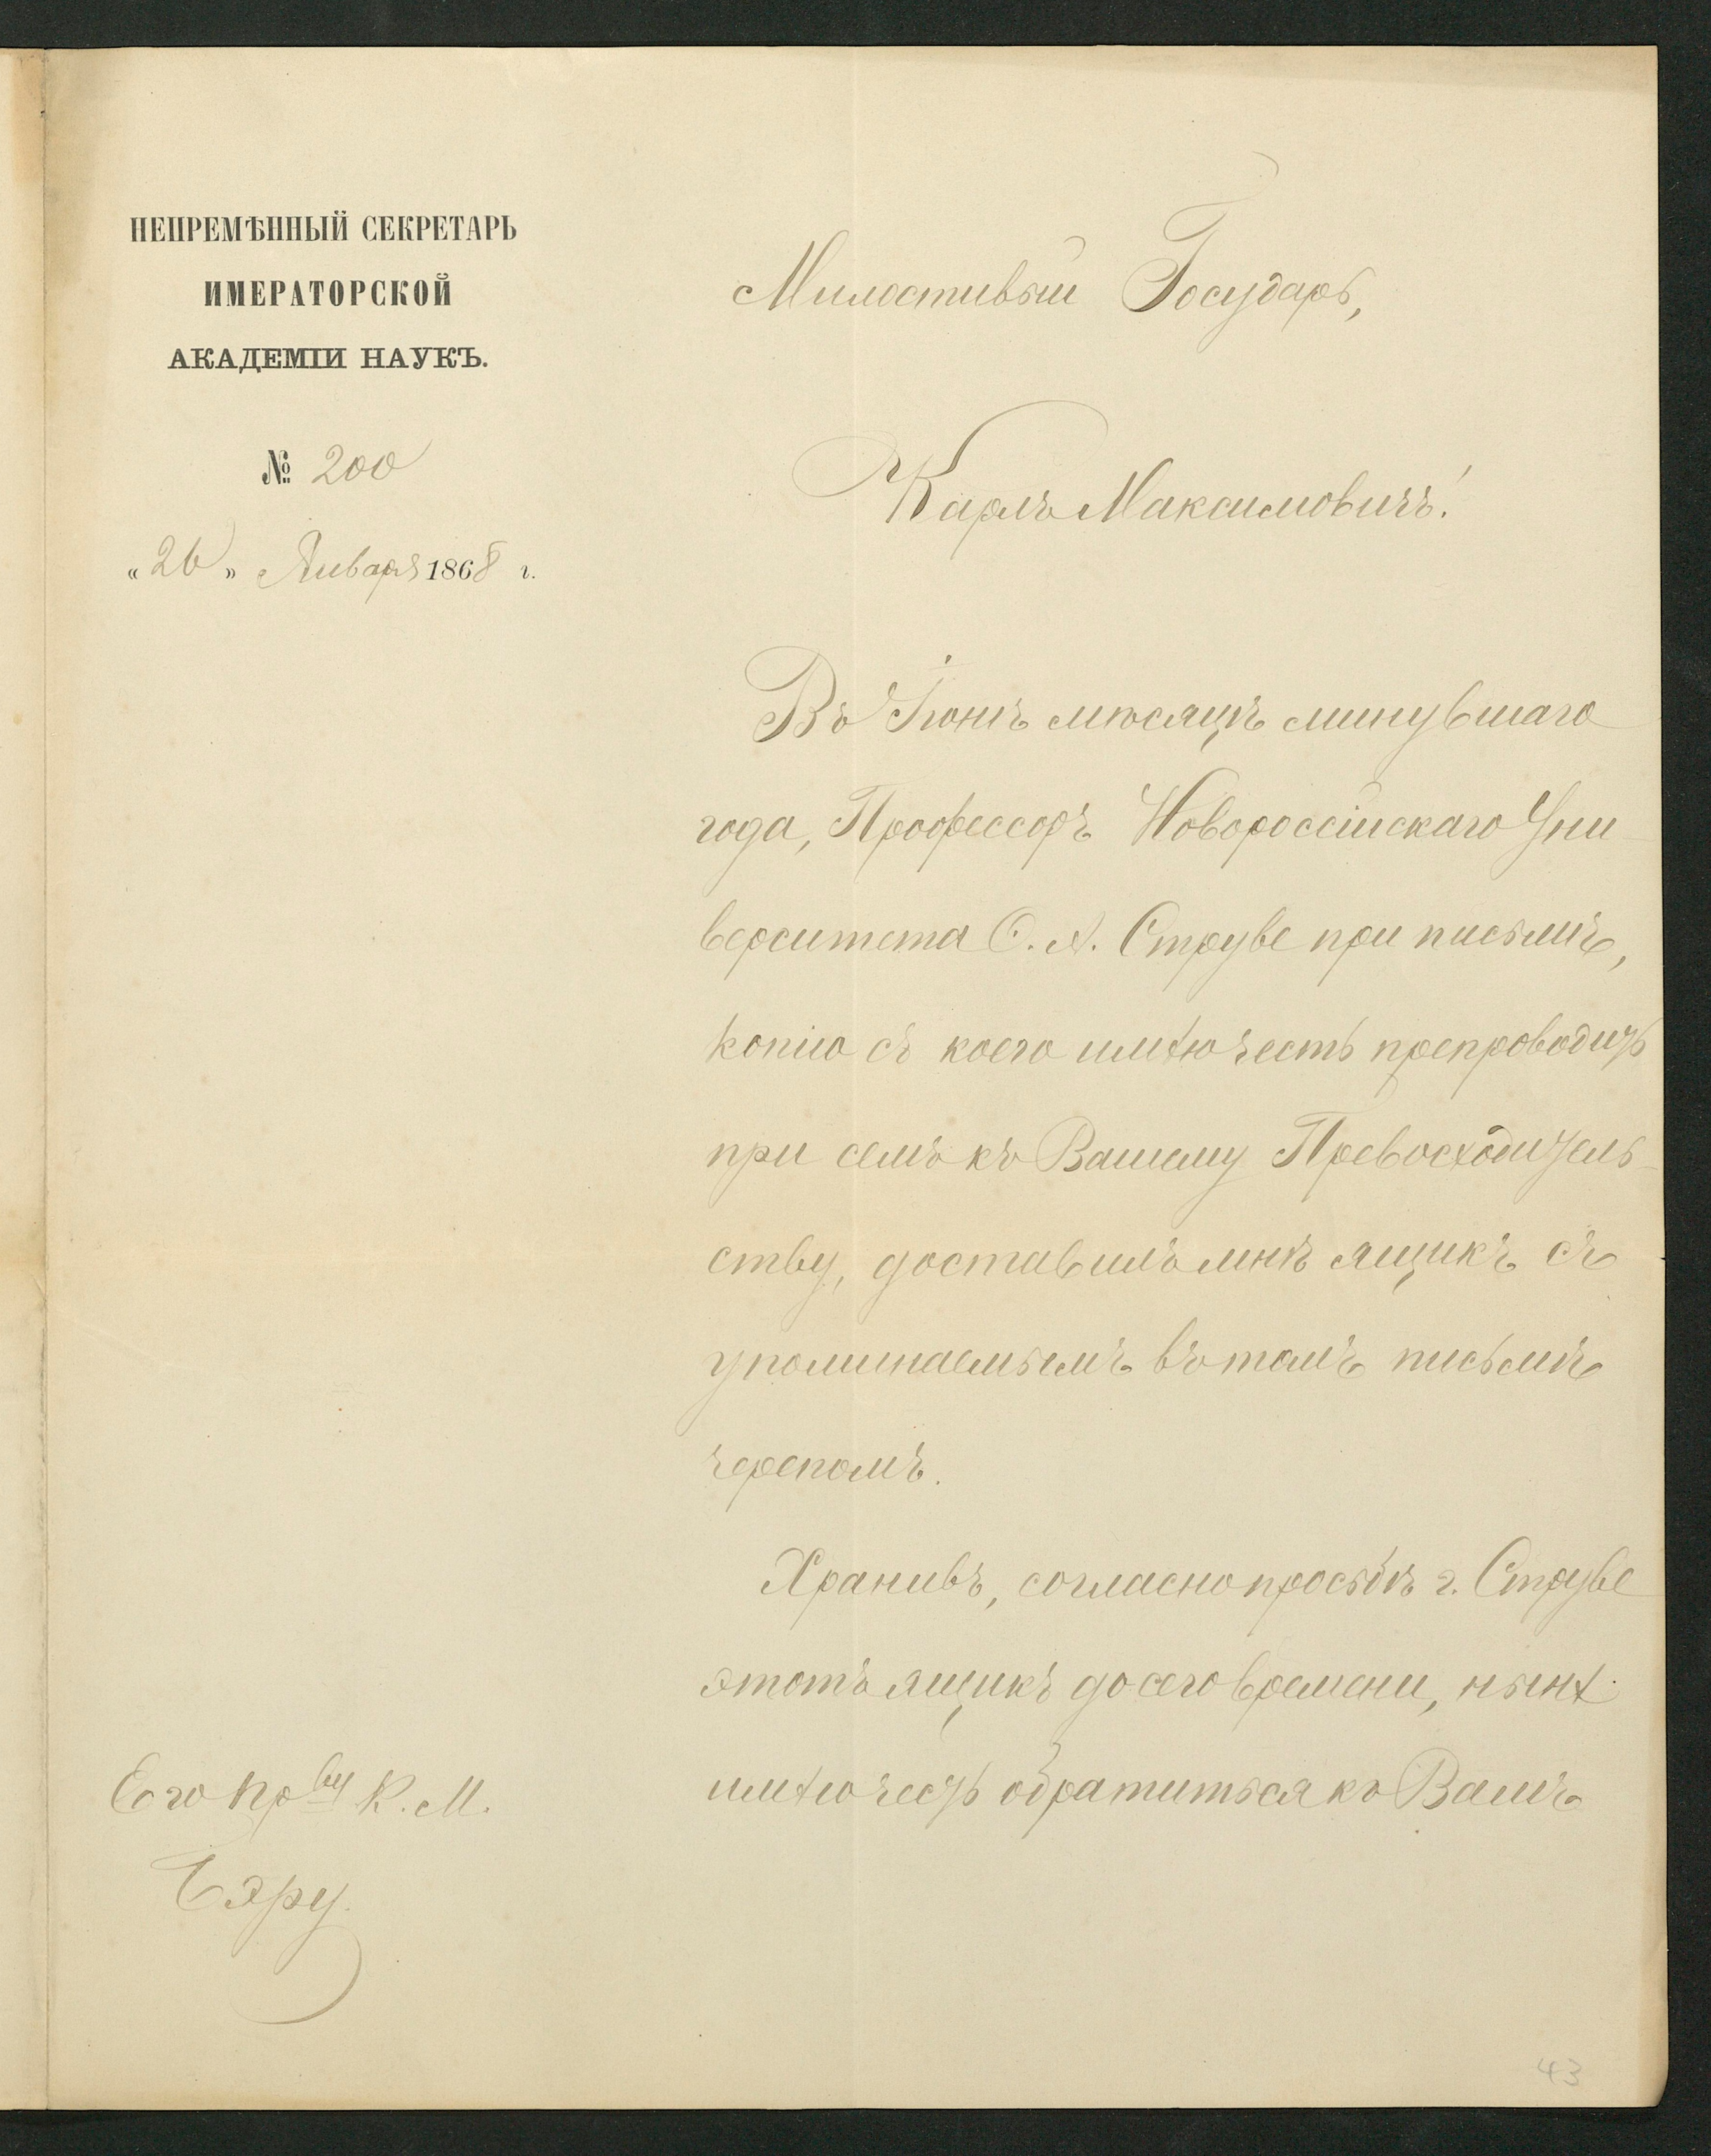 НЕПРЕМѢННЫЙ СЕКРЕТАРЬ
ИМЕРАТОРСКОЙ
АКАДЕМІИ НАУКЪ.
№ 200
„26„ Января 1868 г.
Милостивый Государь,
Карлъ Максимовичъ!
Въ Іюнѣ мѣсяцѣ минувшаго
года, Профессоръ Новороссійскаго Уни
верситета Ѳ. А. Струве при письмѣ,
копію съ коего имѣю честь препроводить
при семъ къ Вашему Превосходитель-
ству, доставилъ мнѣ ящикъ съ
упоминаемымъ въ томъ письмѣ
черепомъ.
Хранивъ, согласно просьбѣ г. Струве
этотъ ящикъ до сего времени, нынѣ
имѣю честь обратиться къ Вамъ
Его Пр ву К. М.
Бэру.
43